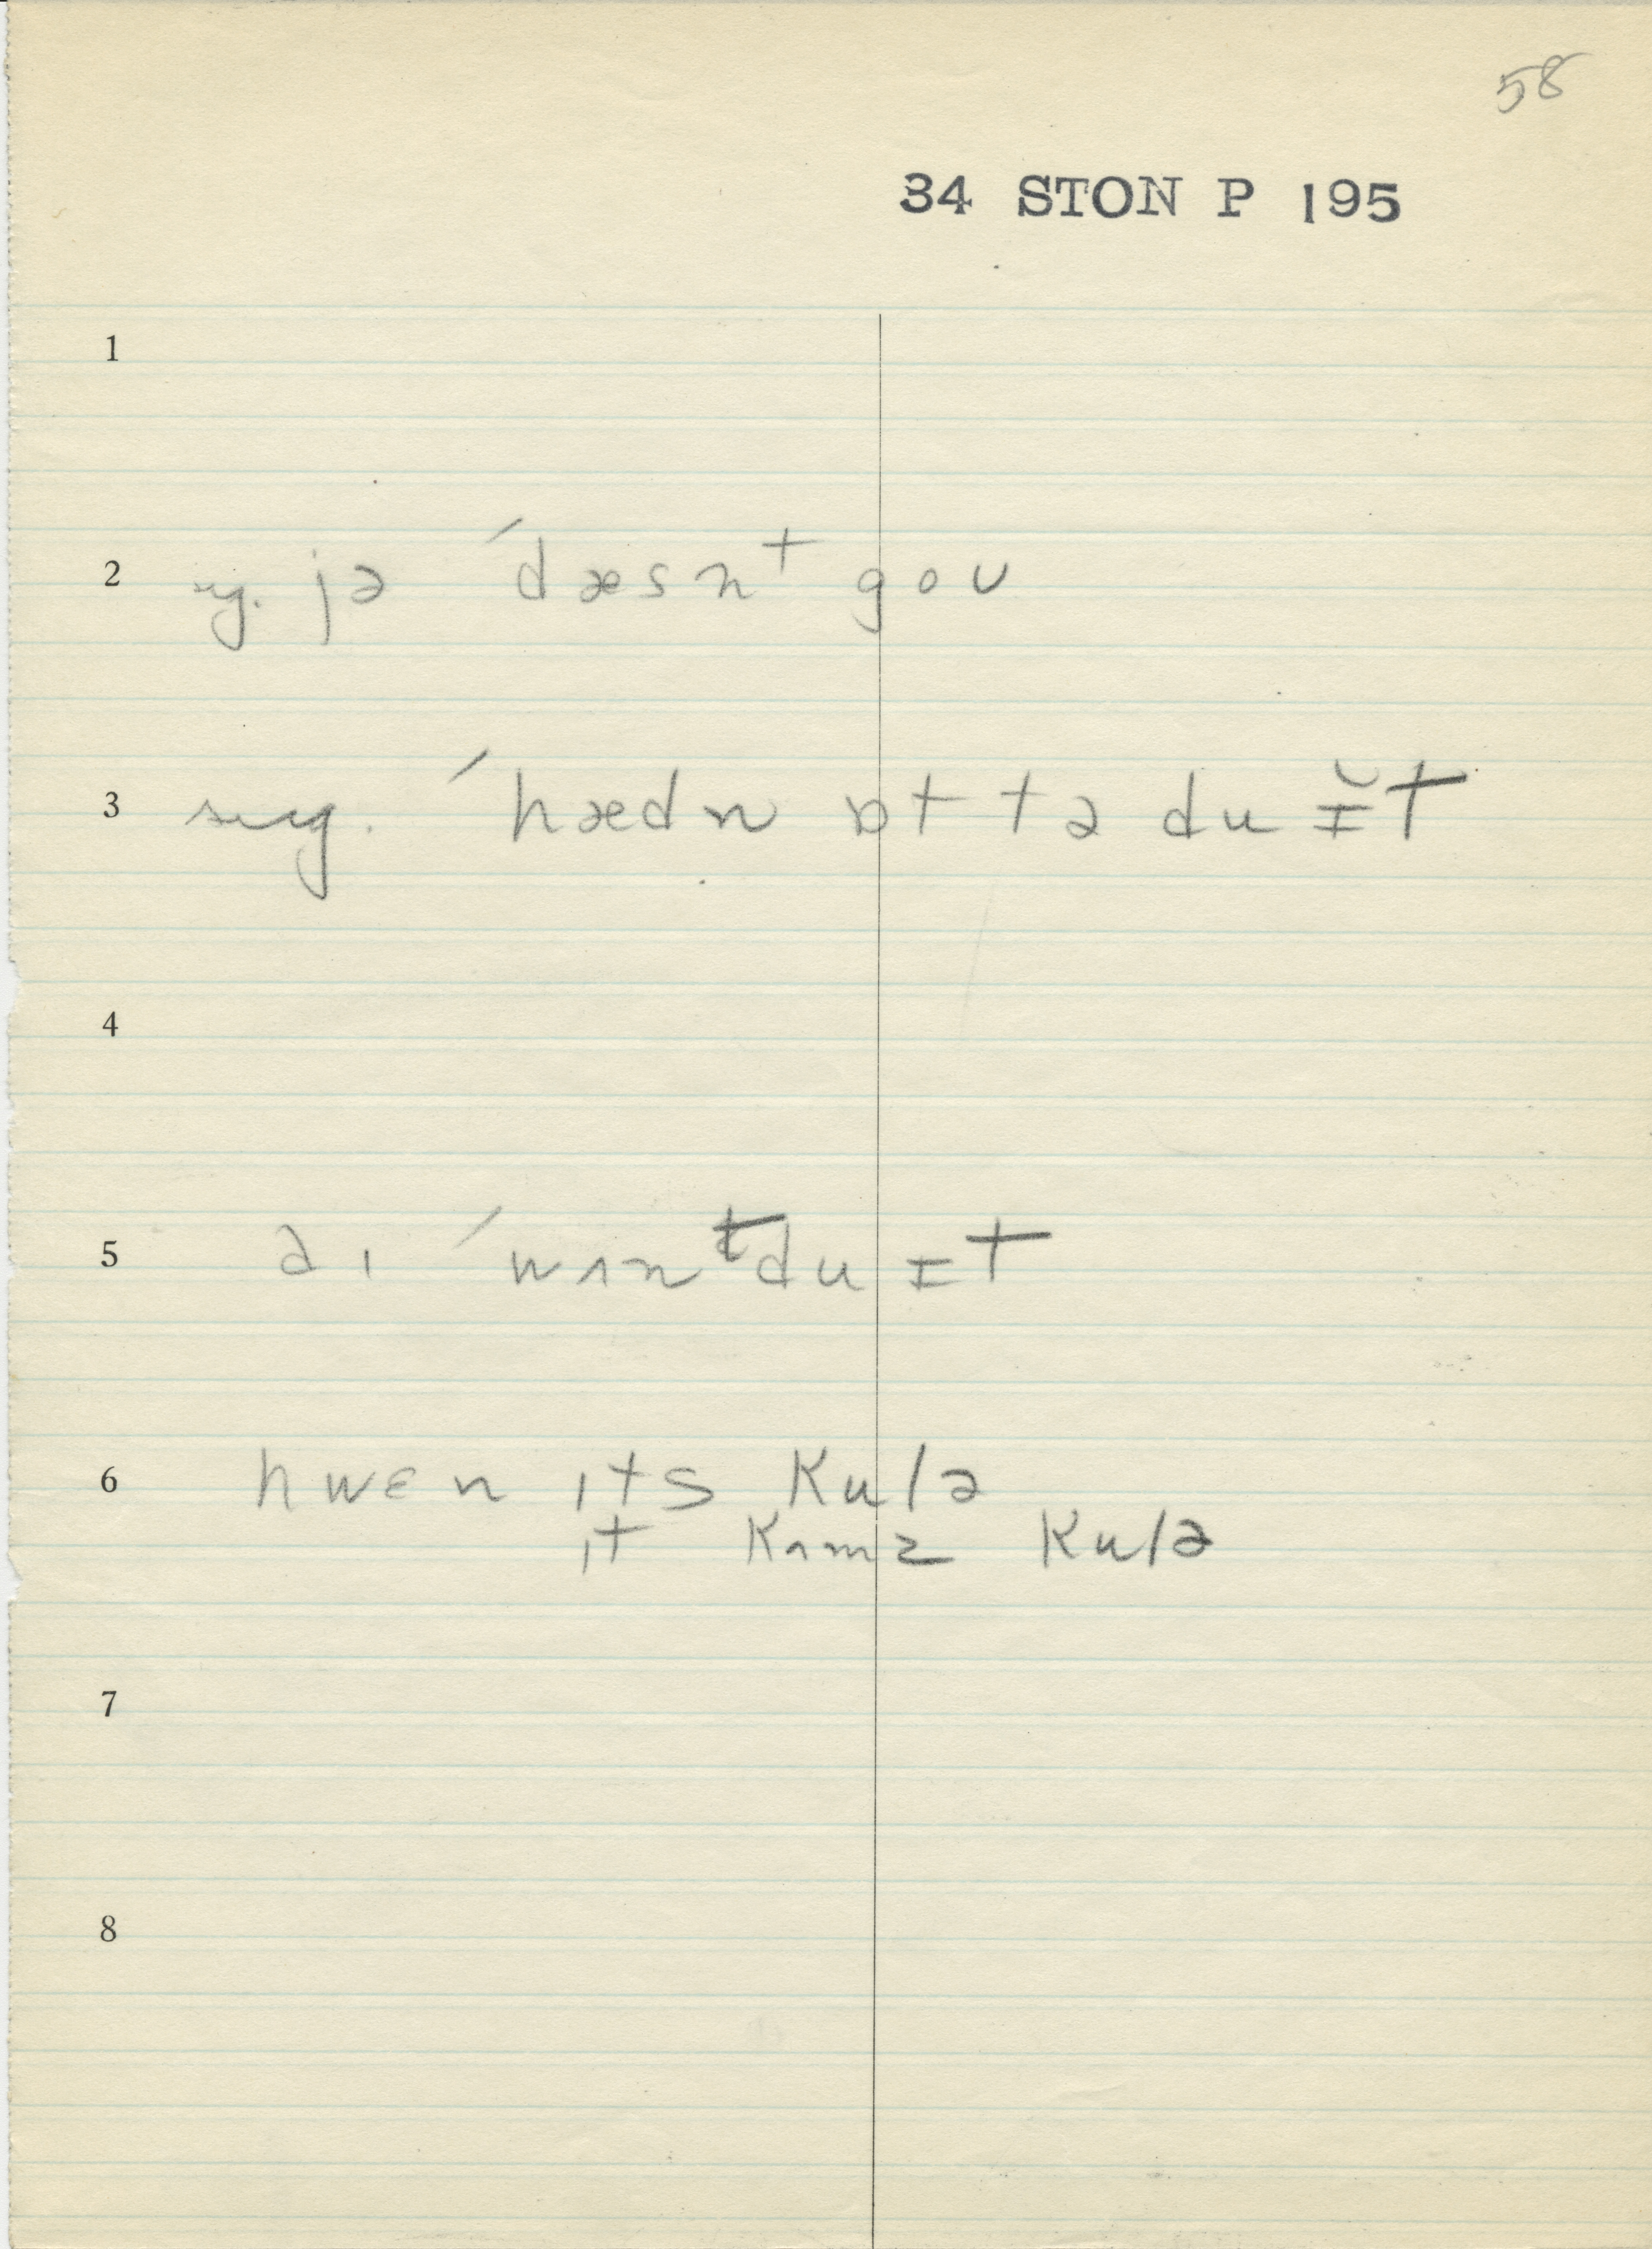 58
34 STON P 195
1
2 sug. jə ´dæsnᵗ goʊ
3 sug. ´hædn ɒt tə du ɪ̆t
4
5 aɪ ´wʌnᵗdu ɪt
6 hwɛn ɪts kulə
ɪt kʌmz kulə
7
8